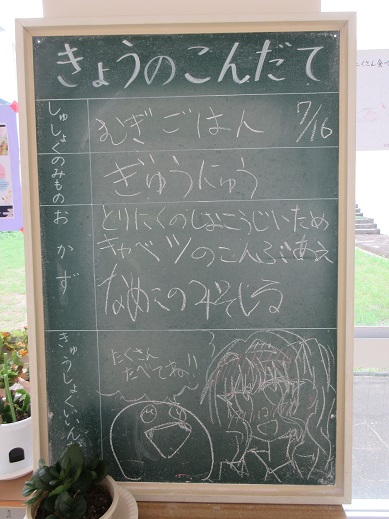 きょうのこんだて
しゅしょく
むぎごはん
7/16
のみもの
ぎゅうにゅう
おかず
とりにくのしおこうじいため
キャベツのこんぶあえ
なめこのみそしる
きゅうしょくいいん
たくさん
たべてね!!